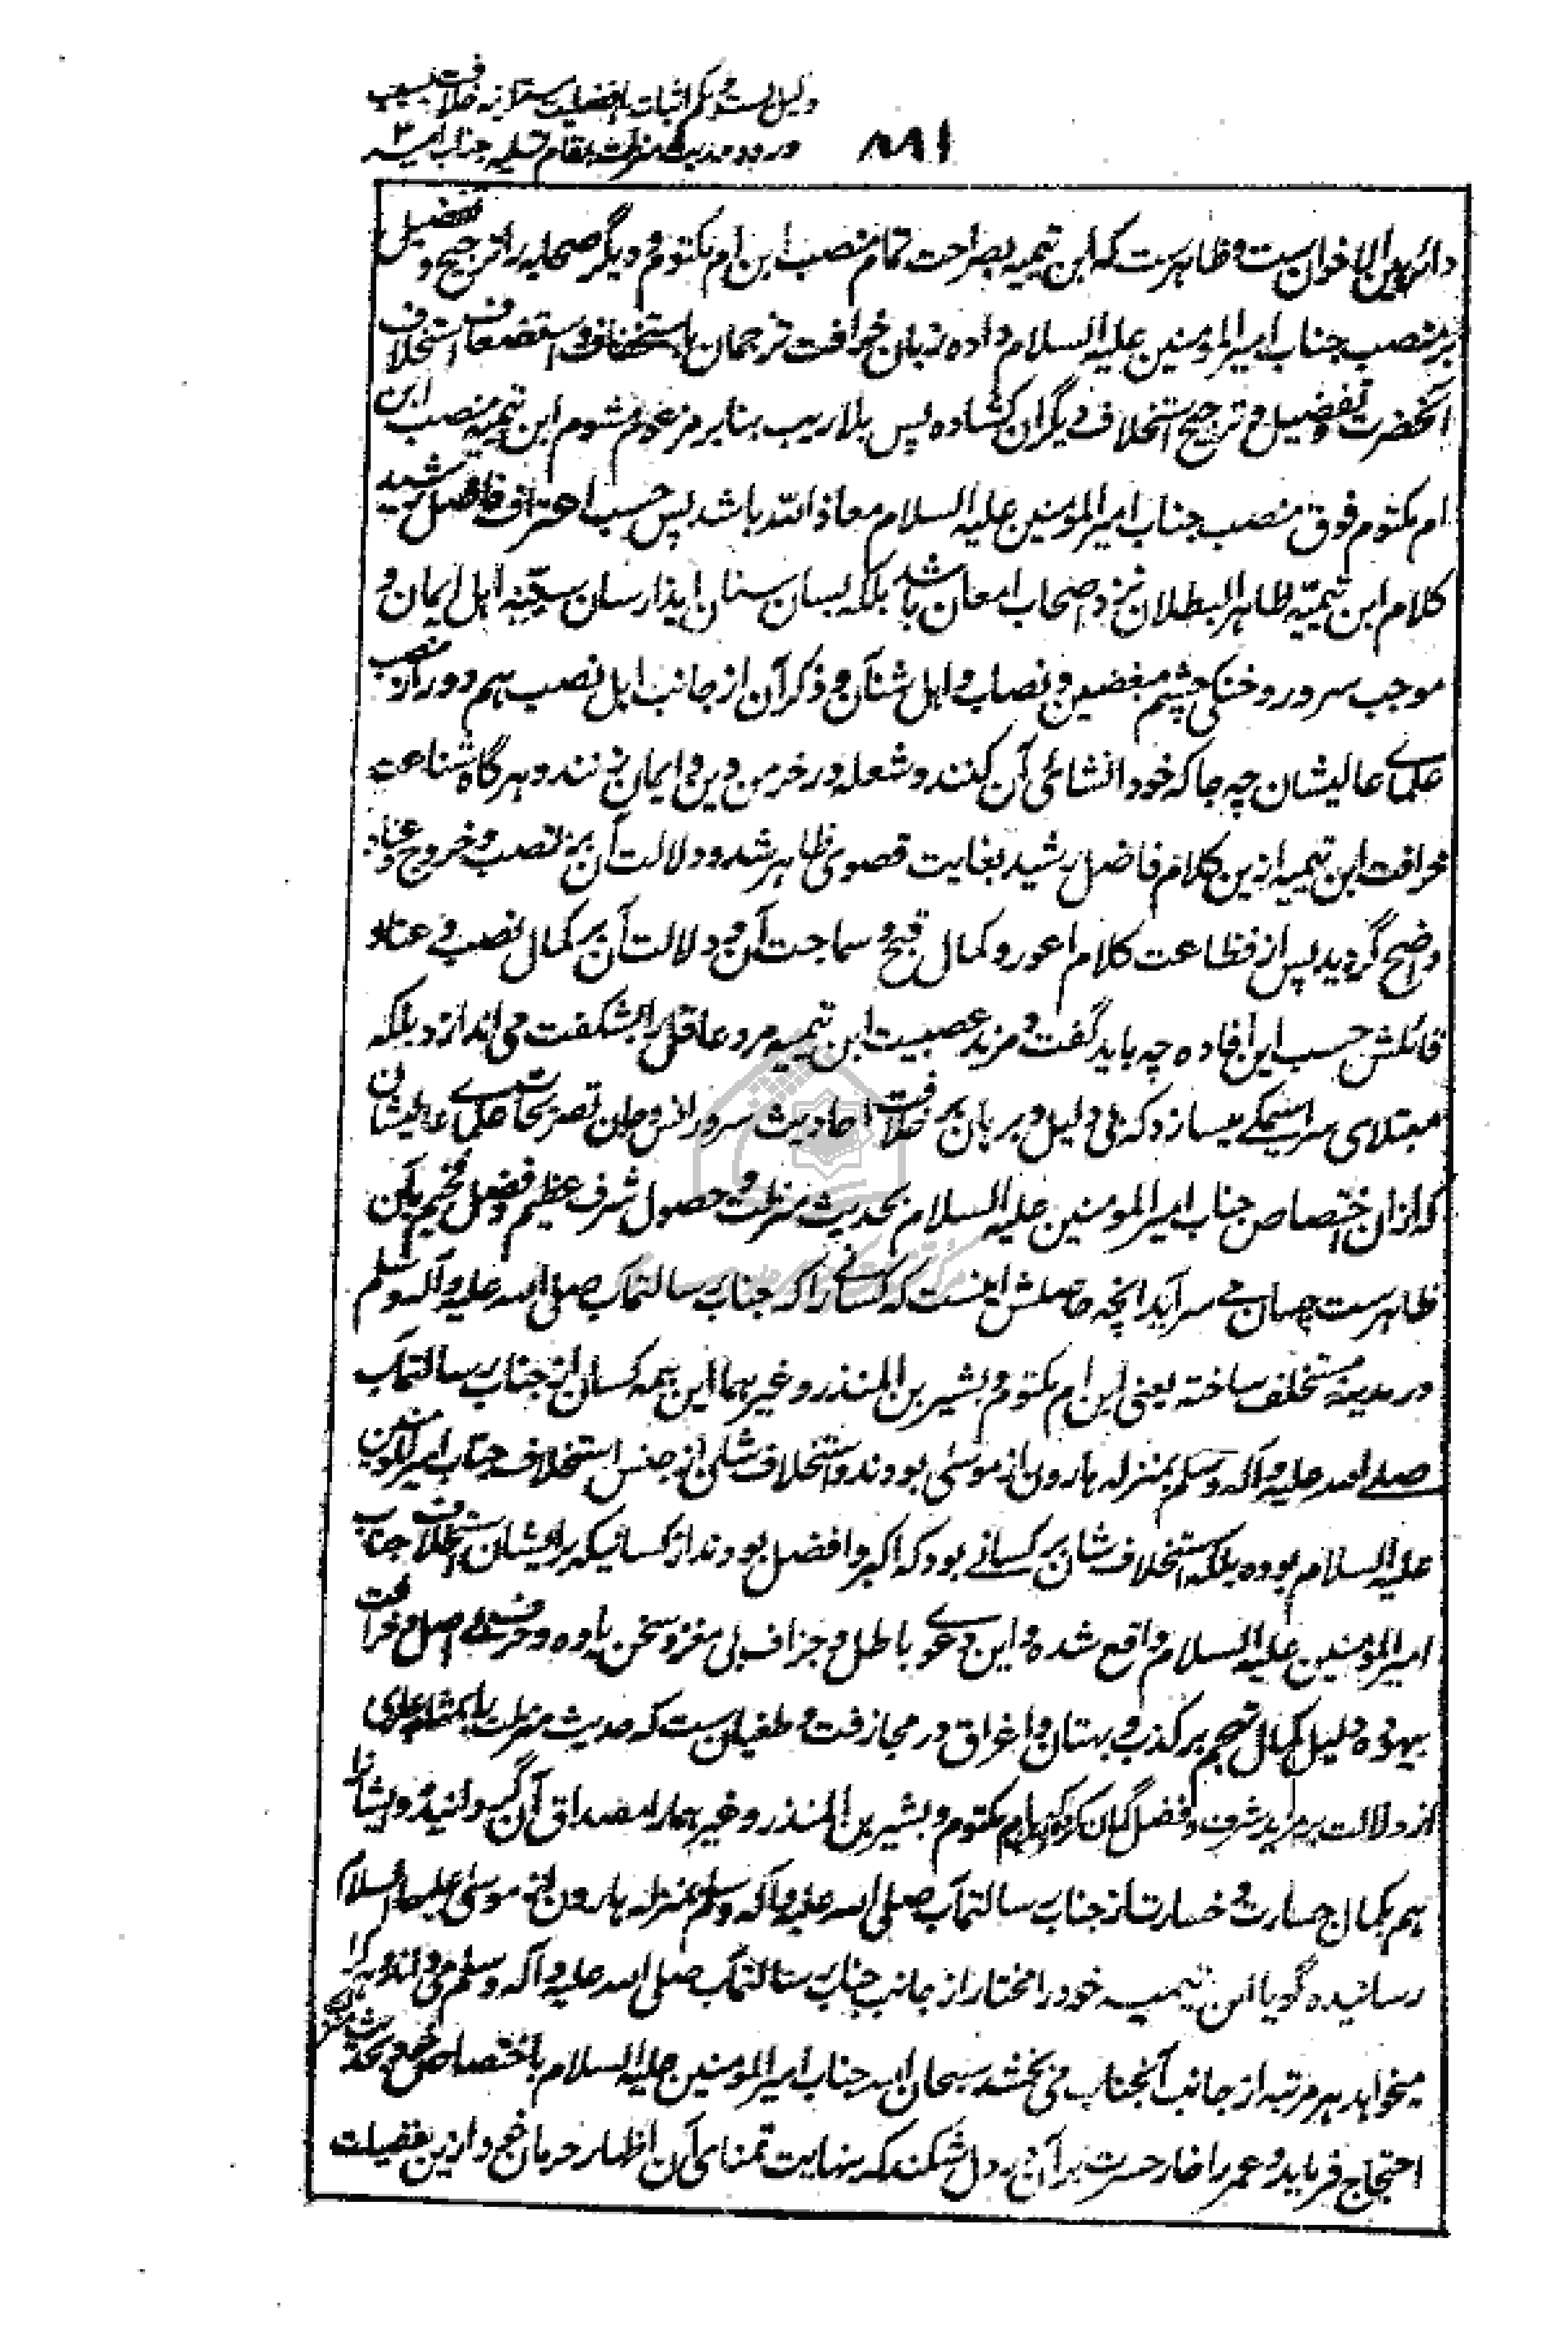 دلیل بست و یکم اثبات افضلیت خلافت بسبب
ورود حدیث منزلت بمقام تسلیه جناب امیر ۴
۸۸۱
الاخوان ست و ظاهرست که ابن تیمیه بصراحت تمام منصب ابن ام مکتوم و دیگر صحابه را ترجیح و تفضیل
بر منصب جناب امیر المومنین علیه السلام داده زبان خرافت ترجمان باستخفاف و استضعاف استخلاف
آنحضرت و تفضیل و ترجیح استخلاف دیگران کشاده پس بلا ریب بنا بر مزعوم مشوم ابن تیمیه منصب ابن
ام مکتوم فوق منصب جناب امیر المومنین علیه السلام معاذ الله باشد پس حسب اعتراف فاضل رشید
کلام ابن تیمیّه ظاهر البطلان نزد اصحاب امعان باشد بلکه لبسان سنان ایذا رسان سینه اهل ایمان و
موجب سرور و خنکی چشم مبغضین و نصاب و اهل شنآن و ذکر آن از جانب اهل نصب هم دور از منصب
علمای عالیشان چه جا که خود انشائی آن کنند و شعله در خرمن دین و ایمان زنند و هر گاه شناعت
خرافت ابن تیمیه ازین کلام فاضل رشید بغایت قصوی ظاهر شد و دلالت آن بر نصب و خروج و عناد
واضح گردید پس از فظاعت کلام اعور و کمال قبح و سماجت آن و دلالت آن بر کمال نصب و عناد
قائلش حسب این افاده چه باید گفت و مزید عصبیت ابن تیمیه مرد عاقل را بشگفت می اندازد بلکه
مبتلای سراسیمگی میسازد که بی دلیل و برهان بر خلاف احادیث سرور انس و جان و تصریحات علمای عالیشان
که ازان اختصاص جناب امیر المومنین علیه السلام بحدیث منزلت و حصول شرف عظیم و فضل فخیم بآن
ظاهرست چسان می سراید آنچه حاصلش اینست که کسانی را که جناب رسالتمآب صلی الله علیه و آله و سلم
در مدینه مستخلف ساخته یعنی ابن ام مکتوم و بشیر بن المنذر و غیر هما این همه کسان از جناب رسالتمآب
صلی الله علیه و آله و سلم بمنزله هارون از موسی بودند و استخلاف شان از جنس استخلاف جناب امیر المومنین
علیه السلام بوده بلکه استخلاف شان بر کسانی بود که اکبر و افضل بودند از کسانیکه برایشان استخلاف جناب
امیر المومنین علیه السلام واقع شده و این دعوی باطل و جزاف بی مغز و سخن یاوه و حرف بی اصل و خرافت
بیهوده دلیل کمال تهجم بر کذب و بهتان و اغراق در مجازفت و طغیان ست که حدیث منزلت را
از دلالت بر مزید شرف و فضل گمان کرده که ابن ام مکتوم و بشیر بن المنذر و غیر هما را مصداق آن گردانیده و ایشانرا
هم بکمال جسارت و خسارت از جناب رسالتمآب صلی الله علیه و آله و سلم بمنزله هارون از موسی علیهما السلام
رسانیده گویا ابن تیمیه خود را مختار از جانب جناب رسالتمآب صلی الله علیه و آله و سلم می داند و هر کرا
میخواهد هر مرتبه از جانب آنجناب می بخشد سبحان الله جناب امیر المومنین علیه السلام باختصاص خود بحدیث منزلت
احتجاج فرماید و عمر را خار حسرت بر آن در دل شکند که بنهایت تمنای آن اظهار حرمان خود ازین فضیلت